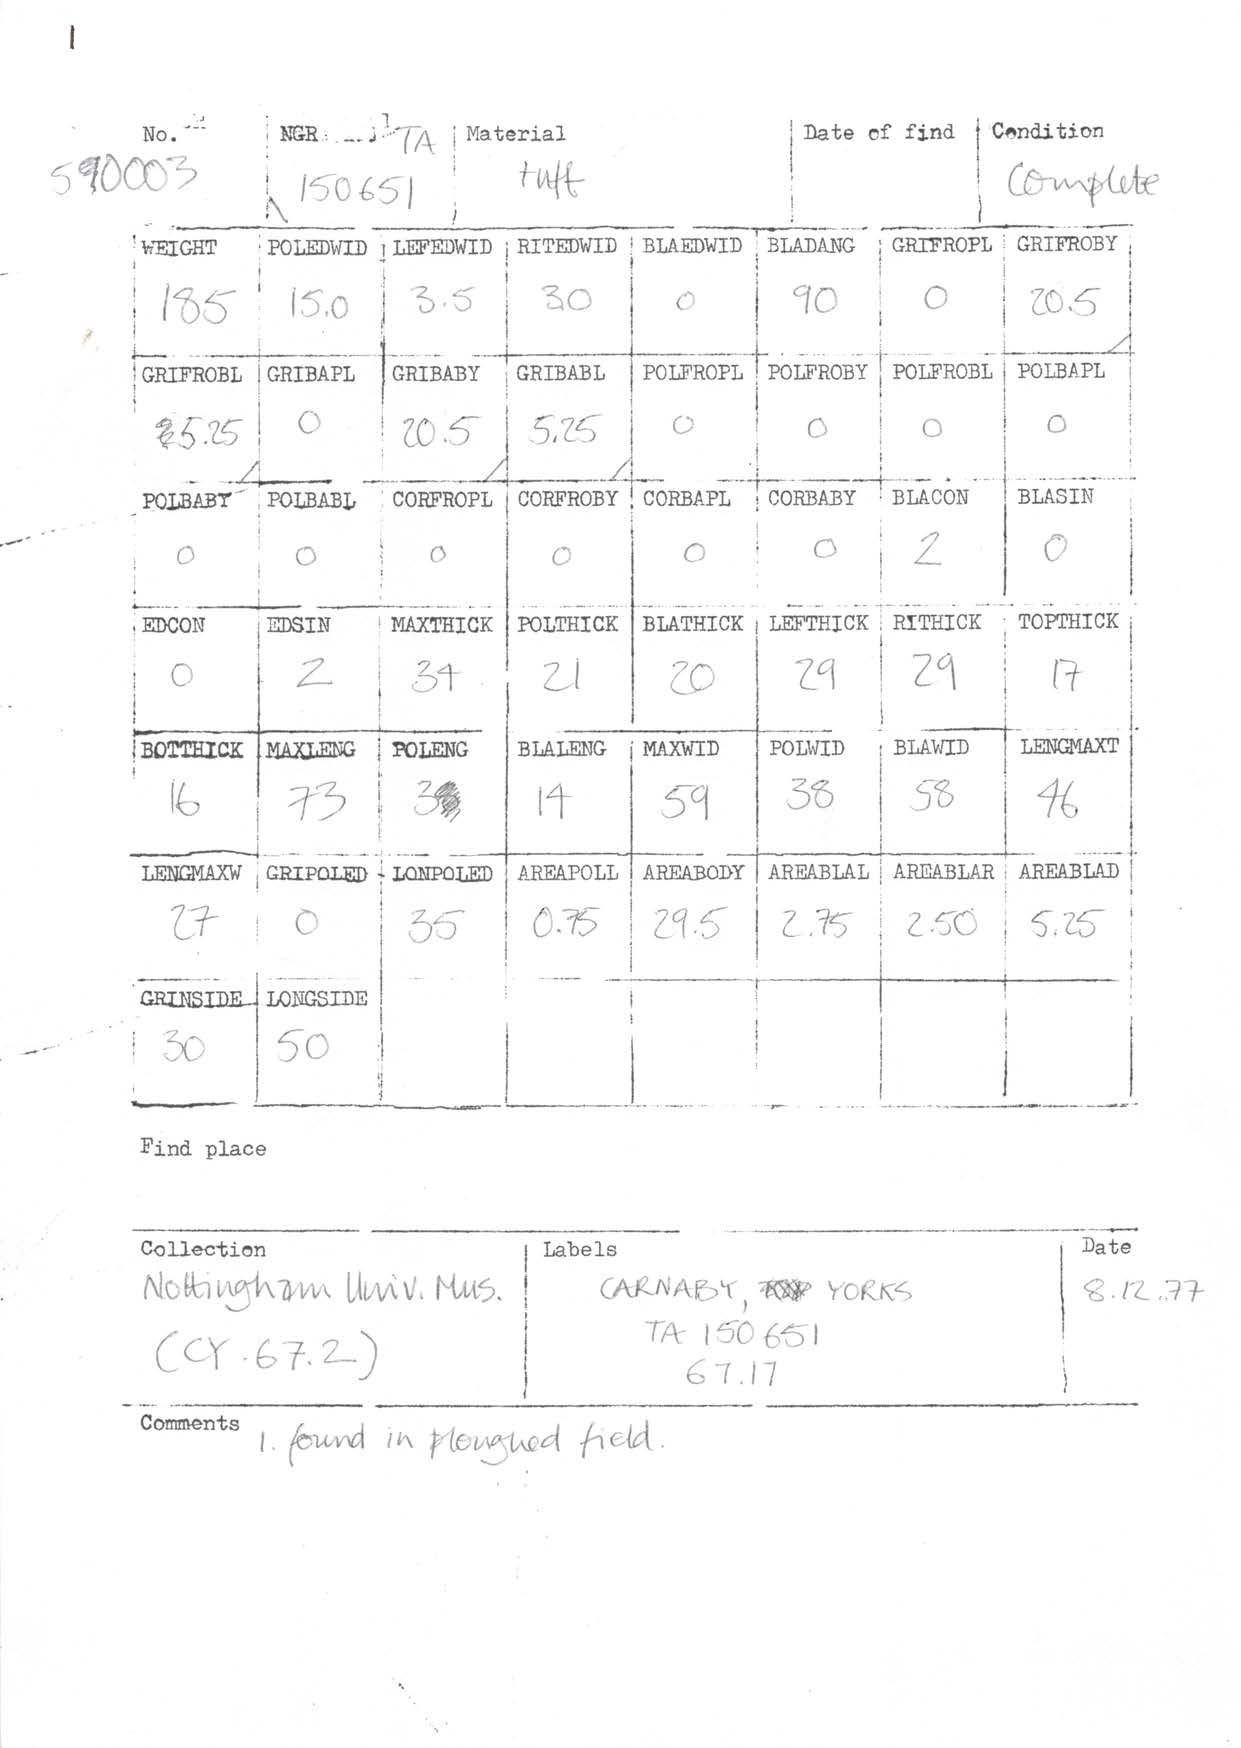 1
No. NGR TA Material Date of find Condition
590003 150651 tuff complete
WEIGHT POLEDWID LEFEDWID RITEDWID BLAEDWID BLADANG GRIFROPL GRIFROBY
185 15.0 3.5 3.0 0 90 0 20.5
GRIFROBL GRIBAPL GRIBABY GRIBABL POLFROPL POLFROBY POLFROBL POLBAPL
5.25 0 20.5 5.25 0 0 0 0
POLBABY POLBABL CORFROPL CORFROBY CORBAPL CORBABY BLACON BLASIN
0 0 0 0 0 0 2 0
EDCON EDSIN MAXTHICK POLTHICK BLATHICK LEFTHICK RITHICK TOPTHICK
0 2 34 21 20 29 29 17
BOTTHICK MAXLENG POLENG BLALENG MAXWID POLWID BLAWID LENGMAXT
16 73 3 14 59 38 58 46
LENGMAXW GRIPOLED LONPOLED AREAPOLL AREABODY AREABLAL AREABLAR AREABLAD
27 0 35 0.75 29.5 2.75 2.50 5.25
GRINSIDE LONGSIDE
30 50
Find place
Collection Labels Date
Nottingham Univ. Mus. CARNABY, YORKS 8.12.77
(CY.67.2) TA 150651
67.17
Comments 1. found in ploughed field.